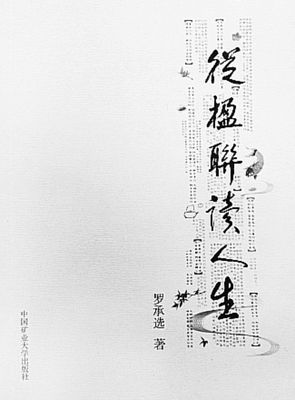 從楹聯读人生
罗承选 著
中国矿业大学出版社